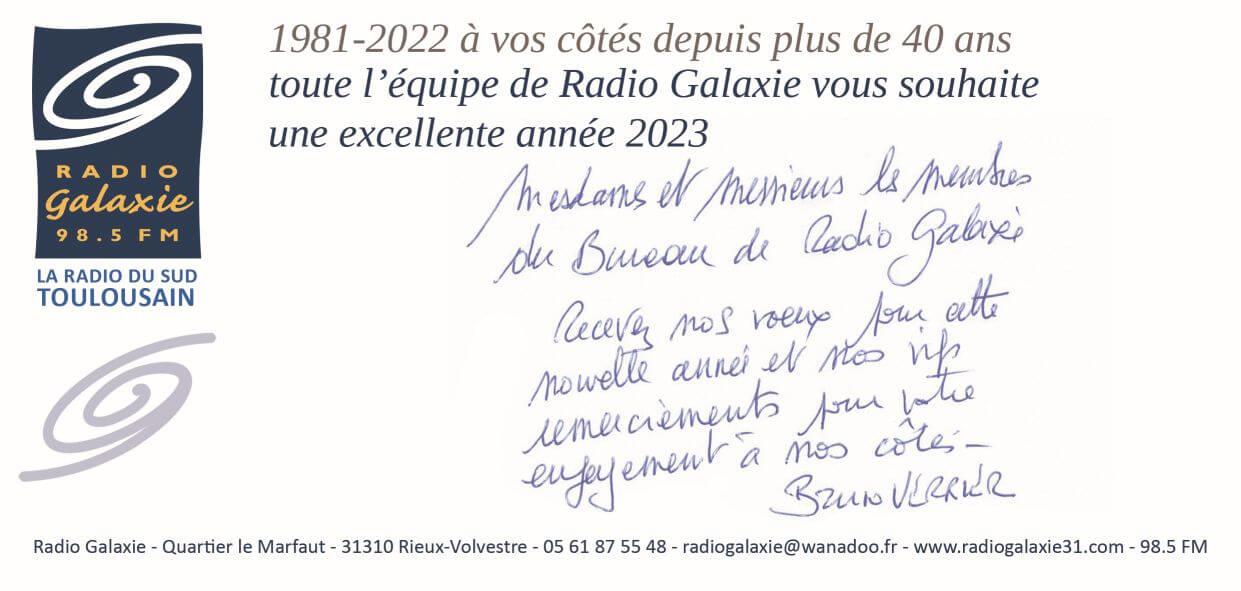 1981-2022 à vos côtés depuis plus de 40 ans
toute l’équipe de Radio Galaxie vous souhaite
une excellente année 2023
RADIO
Galaxie
98.5 FM
LA RADIO DU SUD
TOULOUSAIN
Mesdames et Messieurs les membres
du Bureau de Radio Galaxie
Recevez nos voeux pour cette
nouvelle année et nos vifs
remerciements pour votre
engagement à nos côtés -
Bruno VERRIER
Radio Galaxie - Quartier le Marfaut - 31310 Rieux-Volvestre - 05 61 87 55 48 - radiogalaxie@wanadoo.fr - www.radiogalaxie31.com - 98.5 FM